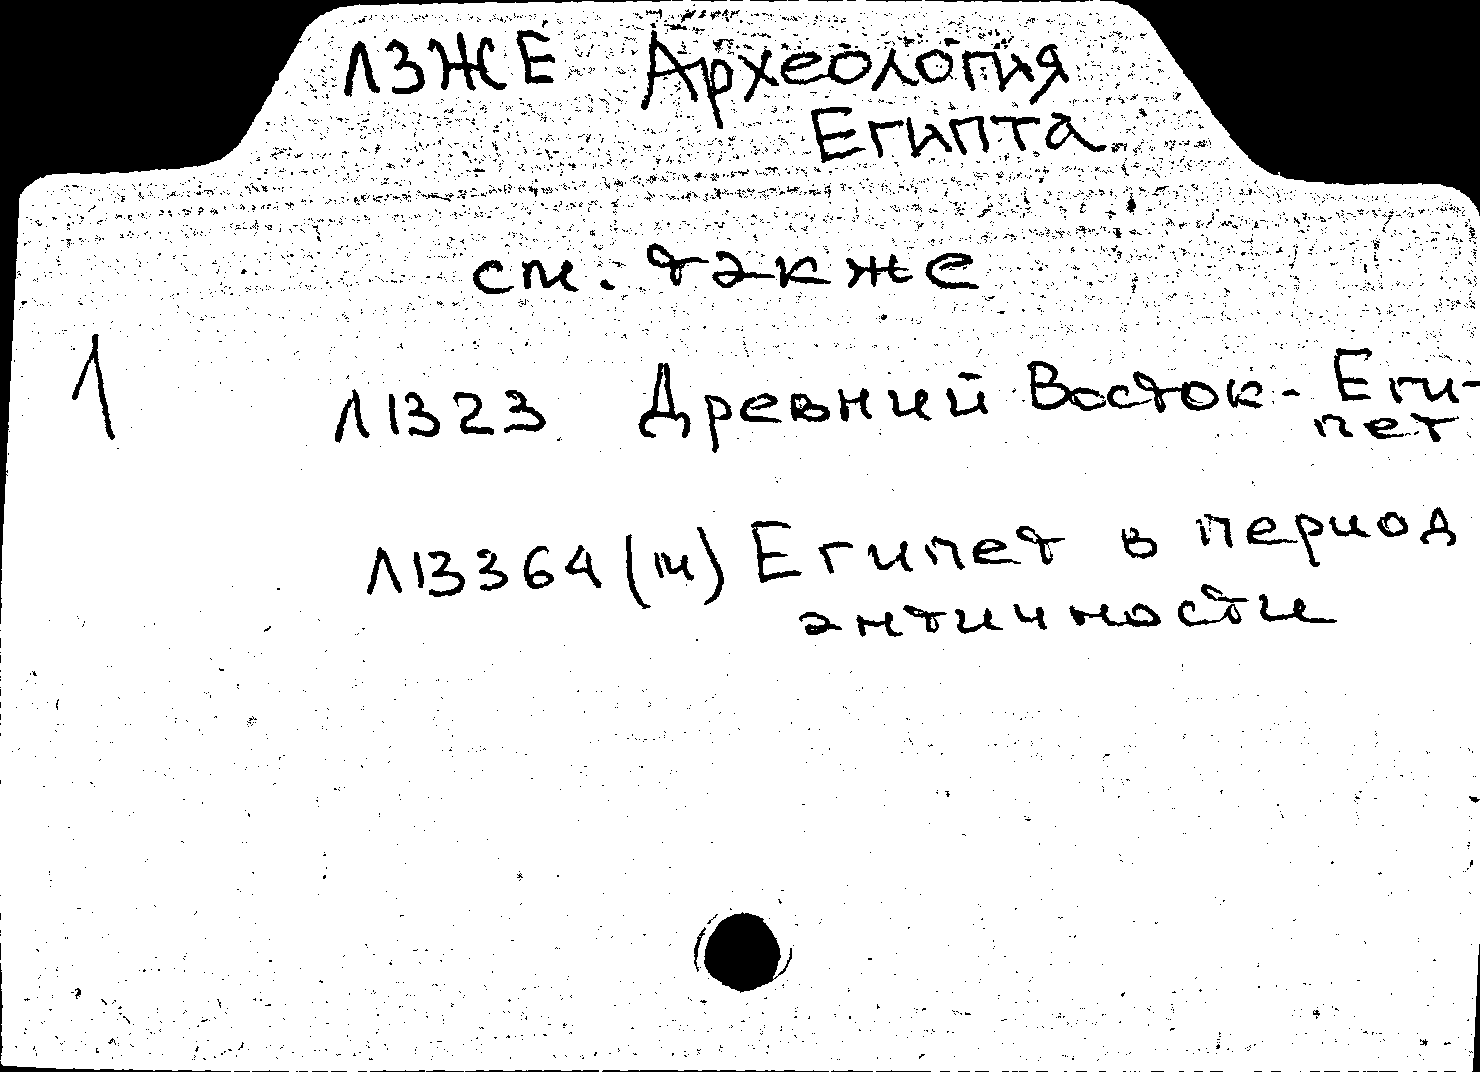 Л3ЖЕ Археология
Египта
см. также
1
Л1323 Древний Восток - Еги-
пет
Л13364(м) Египет в период
античности